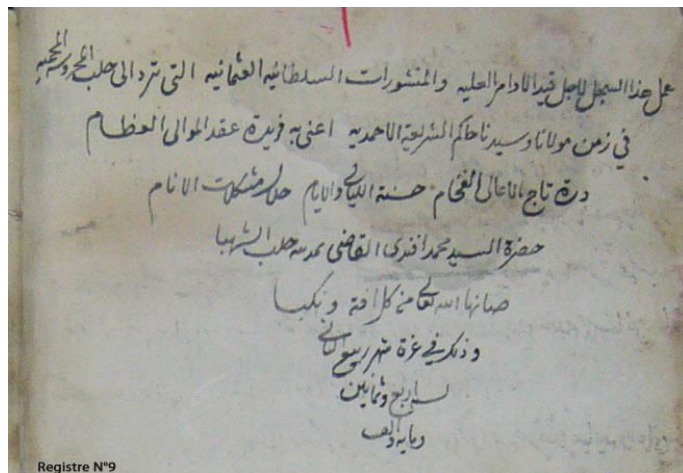 عمل هذا السجل لاجل قيد الاوامر العليه والمنشورات السلطانيه العثمانيه التى ترد الى حلب المحروسه المحميه
في زمن مولانا وسيدنا حاكم الشريعة الاحمديه اعنى به فريدة عقد الموالى العظام
درة تاج الاعالى الفخام حسنة الليالي والايام حلال مشكلات الانام
حضرة السيد محمد افندى القاضى بمدينه حلب الشهبا
صانها الله تعالى من كل افة ونكبا
وذلك في غرة شهر ربيع الثاني
لسنه اربع وثمانين
ومايه والف
Registre N°9